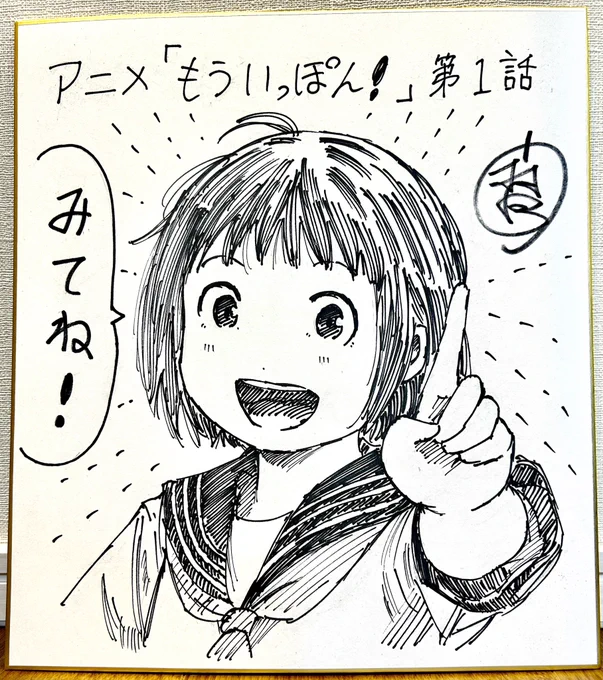 アニメ「もういっぽん!」第1話
みてね!